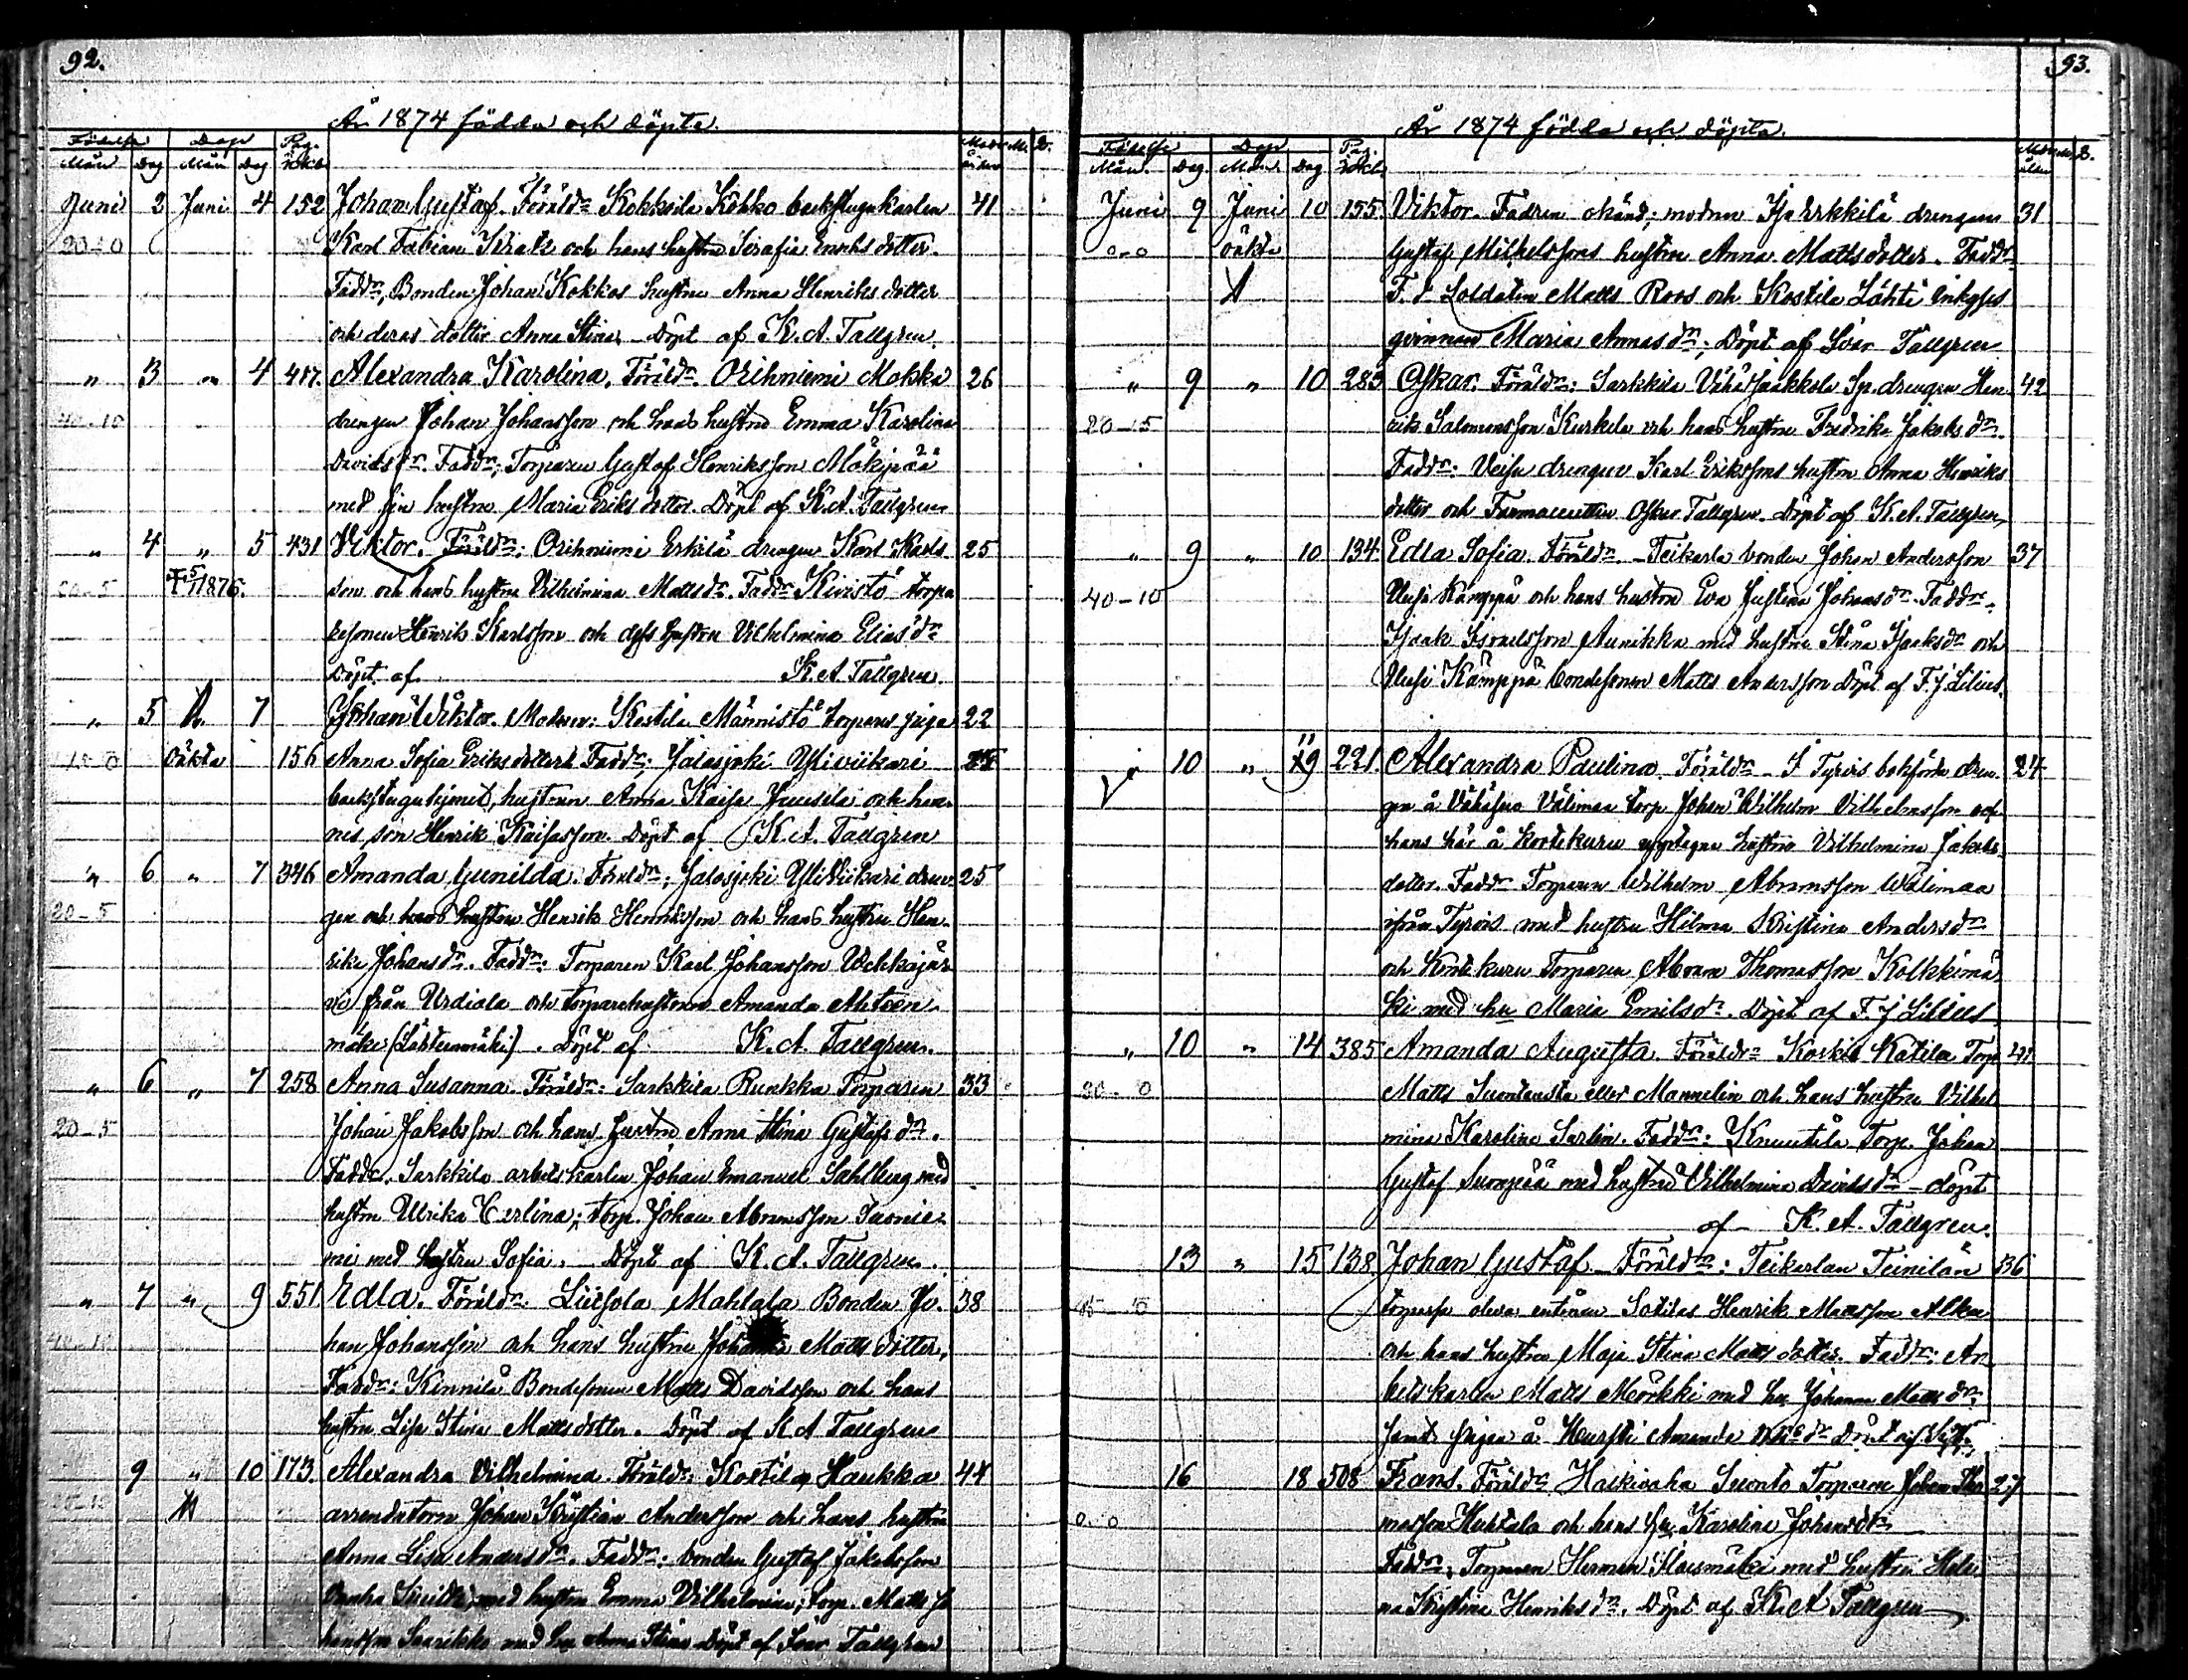 92.
År 1874 födda och döpta.
Födelse Dop Pag. Mod. M. D.
Mån Dag Mån Dag i Kb. ålder
Juni 2 Juni 4 152 Johan Gustaf. Föräldr Kokkoila Kokko backstugukarlen 41
20-0 Karl Fabian och hans hustru Serafia Enoksdotter.
Faddr, Bonden Johan Kokkos hustru Anna Henriksdotter
och deras dotter Anna Stina. Döpt af K. A. Tallgren.
" 3 " 4 417. Alexandra Karolina. Föräldr Orihniemi Mokka 26
40-10 drengen Johan Johansson och hans hustru Emma Karolina
Davidsdr. Faddr; Torparen Gustaf Henriksson Mökipää
med sin hustru Maria Eriksdotter. Döpt af K. A. Tallgren
" 4 " 5 431 Viktor. Föräldr: Orihniemi Erkilä drengen Karl Karls 25
20-5 † 5/1 1876. son och hans hustru Vilhelmina Mattsdr. Faddr Kivistö torpa
resonen Henrik Karlsson och dess hustru Vilhelmina Eliasdr
Döpt af K. A. Tallgren.
" 5 7 Johan Viktor. Modren: Kostila Männistö torpares piga 22
15-0 oäkta 156 Anna Sofia Eriksdotter. Faddr; Jalasjoki Yliviikari
backstuguhjonet, hustrun Anna Kaisa Juusela och hen-
nes son Henrik Kaisasson. Döpt af K. A. Tallgren
" 6 " 7 346 Amanda Gunilda. Föräldr; Jalasjoki Yliviikari dren- 25
20-5 gen och hans hustru Henrik Henriksson och hans hustru Hen-
rika Johansdr. Faddr: Torparen Karl Johansson Vehkajär
vi från Urdiala och torparehustrun Amanda Ahteen
mäki (Lähteenmäki). Döpt af K. A. Tallgren.
" 6 " 7 258 Anna Susanna. Föräldr: Sarkkila Runkka Torparen 33
20-5 Johan Jakobsson och hans hustru Anna Stina Gustafsdr.
Faddr. Sarkkila arbetskarlen Johan Emanuel Sahlberg med
hustru Ulrika Cerlina; torp. Johan Abramsson Suonie-
mi med hustru Sofia. Döpt af K. A. Tallgren.
" 7 " 9 551 Edla. Föräldr: Liitsola Mahlala Bonden Jo- 38
40-10 han Johansson och hans hustru Johanna Mattsdotter.
Faddr: Kinnilä Bondesonen Matts Davidsson och hans
hustru Lisa Stina Mattsdotter. Döpt af K A Tallgren
9 " 10 173. Alexandra Vilhelmina. Föräldr: Kostila Haukka 44
arrendatorn Johan Kristian Andersson och hans hustru
Anna Lisa Andersdr. Faddr: bonden Gustaf Jakobsson
med hustru Emma Vilhelmina; torp. Matts Jo
hansson Saarikko med hu Anna Stina Döpt af Ivar Tallgren
93.
År 1874 födda och döpta.
Födelse Dop Pag. Mod. M. D.
Mån. Dag. Mån. Dag i Kb. ålder
Juni 9 Juni 10 155. Viktor. Fadren okänd; modren Erkkilä drengens 31
0-0 oäkta Gustaf Mikelssons hustru Anna Mattsdotter. Faddr
F. d Soldaten Matts Roos och Kostila Lähti inhyses
qvinnan Maria Annasdr; Döpt af Ivar Tallgren
" 9 " 10 283 Oskar. Föräldr: Sarkkila Vähä Jaakkola Sp. drengen Hen- 42
20-5 rik Salomonsson Kurkela och hans hustru Fredrika Jakobsdr.
Faddr: drengen Karl Erikssons hustru Anna Henriks
dotter och Farmaceuten Oskar Tallgren. Döpt af K. A. Tallgren
" 9 " 10 134. Edla Sofia. Föräldr. Teikarla bonden Johan Andersson 37
40-10 Uusi Kämppä och hans hustru Eva Justina Johansdr. Faddr.
Isaak Israelsson Aunikka med hustru Stina Isaksdr och
Uusi Kämppä bondesonen Matts Andersson Döpt af F. J Lilius.
10 " 11 221. Alexandra Paulina. Föräldr. I Tyrvis bokförde dren- 24
gen å Välimaa torp Johan Wilhelm Vilhelmsson och
hans här å Kortekuru upptagna hustru Vilhelmina Jakobs-
dotter. Faddr Torparen Wilhelm Abramsson Välimaa
ifrån Tyrvis med hustru Hilma Kristina Andersdr
och Kortekuru Torparen Abram Thomasson Kolkkimä
ki med hu Maria Emilsdr. Döpt af F. J Lilius
" 10 " 14 385 Amanda Augusta. Föräldr Koski Katila Torp
Matts Suontausta eller Mannelin och hans hustru Vilhel
mina Karolina Sarlin. Faddr: Knuutila Torp. Johan
Gustaf Suonpää med hustru Vilhelmina Davidsdr - döpt
af K. A. Tallgren.
13 " 15 138. Johan Gustaf. Föräldr: Teikarlan Teinilän 36
Henrik Mattsson
och hans hustru Maja Stina Mattsdotter. Faddr: Ar-
betskarlen Matts Mörkki med hu Johanna Mattsdr
samt pigan å Hursti Amanda Döpt af
16 18 508 Frans. Föräldr. Haikinaho Suonto Torparen Johan Tho 27
0-0 masson Huhtala och hans hu Karolina Johansdr
Faddr; Torparen Herman med hustru Hele
na Kristina Henriksdr. Döpt af K. A Tallgren